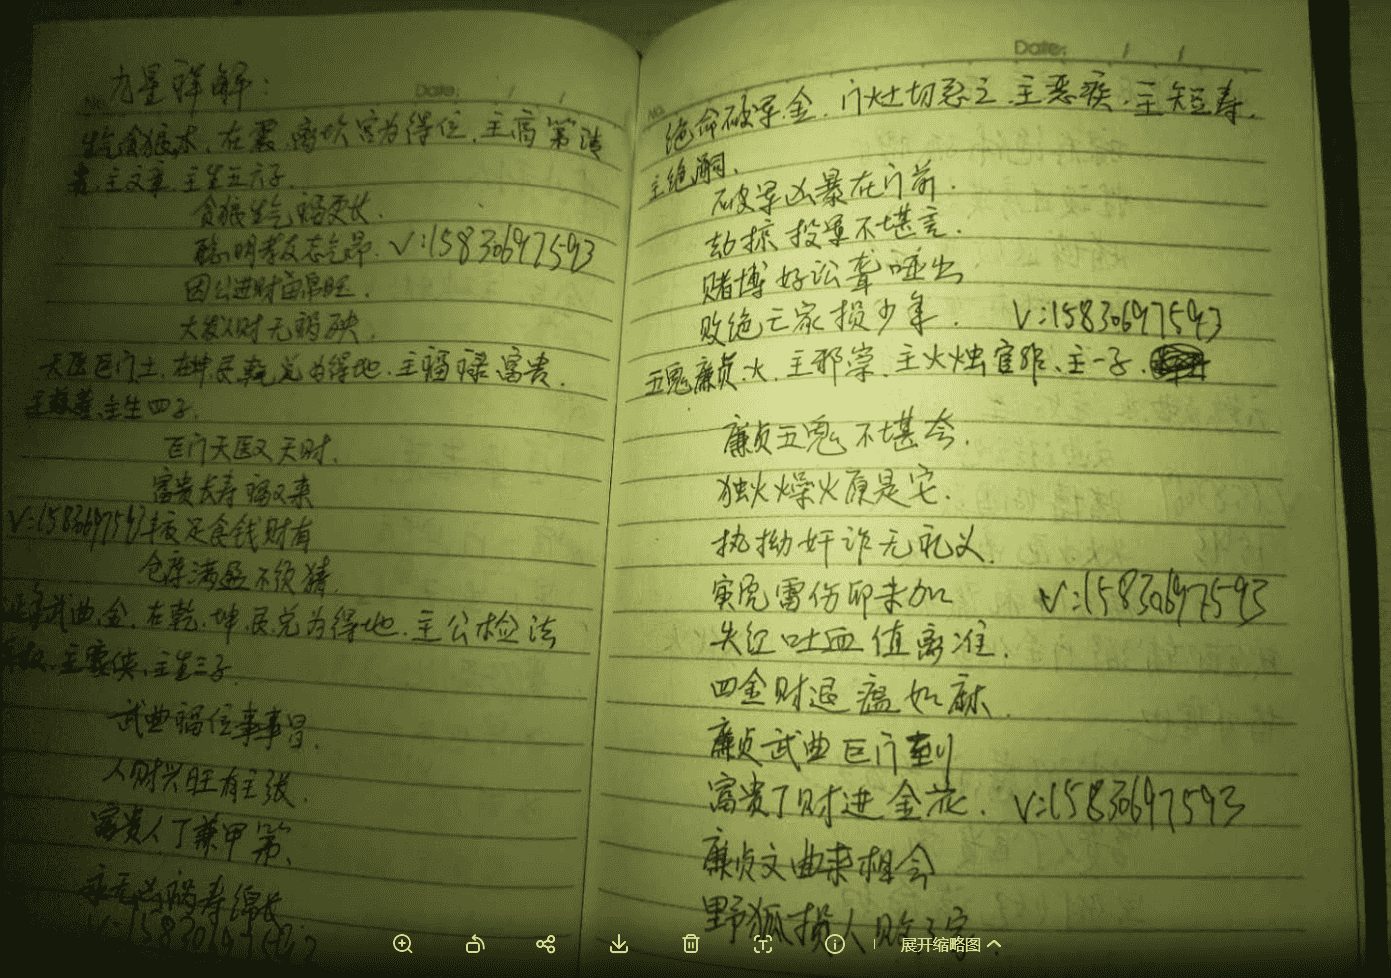 九星详解:
Date: / /
生气贪狼木.在震.离坎宫为得位.主高第清
贵.主文章.主生五六子.
贪狼生气福更长.
聪明孝友志气昂.V:15830697593
因公进财畜帛旺.
大发人财无祸殃.
天医巨门土.在坤.艮.乾.兑为得地.主福禄富贵.
主生四子.
巨门天医又天财.
富贵长寿福又来
V:15830697593丰衣足食钱财有
仓库满盈不须猜.
武曲.金.在乾.坤.艮.兑为得地.主公检法
主豪侠.主生三子.
武曲福位事事昌.
人财兴旺有主张.
富贵人丁兼甲第.
永无凶祸寿绵长
Date: / /
No.
绝命破军金.门灶切忌之.主恶疾.主短寿.
主绝嗣.
破军凶暴在门前.
劫掠投军不堪言.
赌博好讼聋哑出
败绝亡家损少年. V:15830697593
五鬼廉贞.火.主邪祟.主火烛官非.主一子.
廉贞五鬼不堪夸.
独火燥火原是它.
执拗奸诈无礼义
寅虎雷伤卯未加 V:15830697593
失红吐血值离准.
四金财退瘟如麻.
廉贞武曲巨门到
富贵丁财进金花. V:15830697593
廉贞文曲来相会
野狐损人败了家
展开缩略图